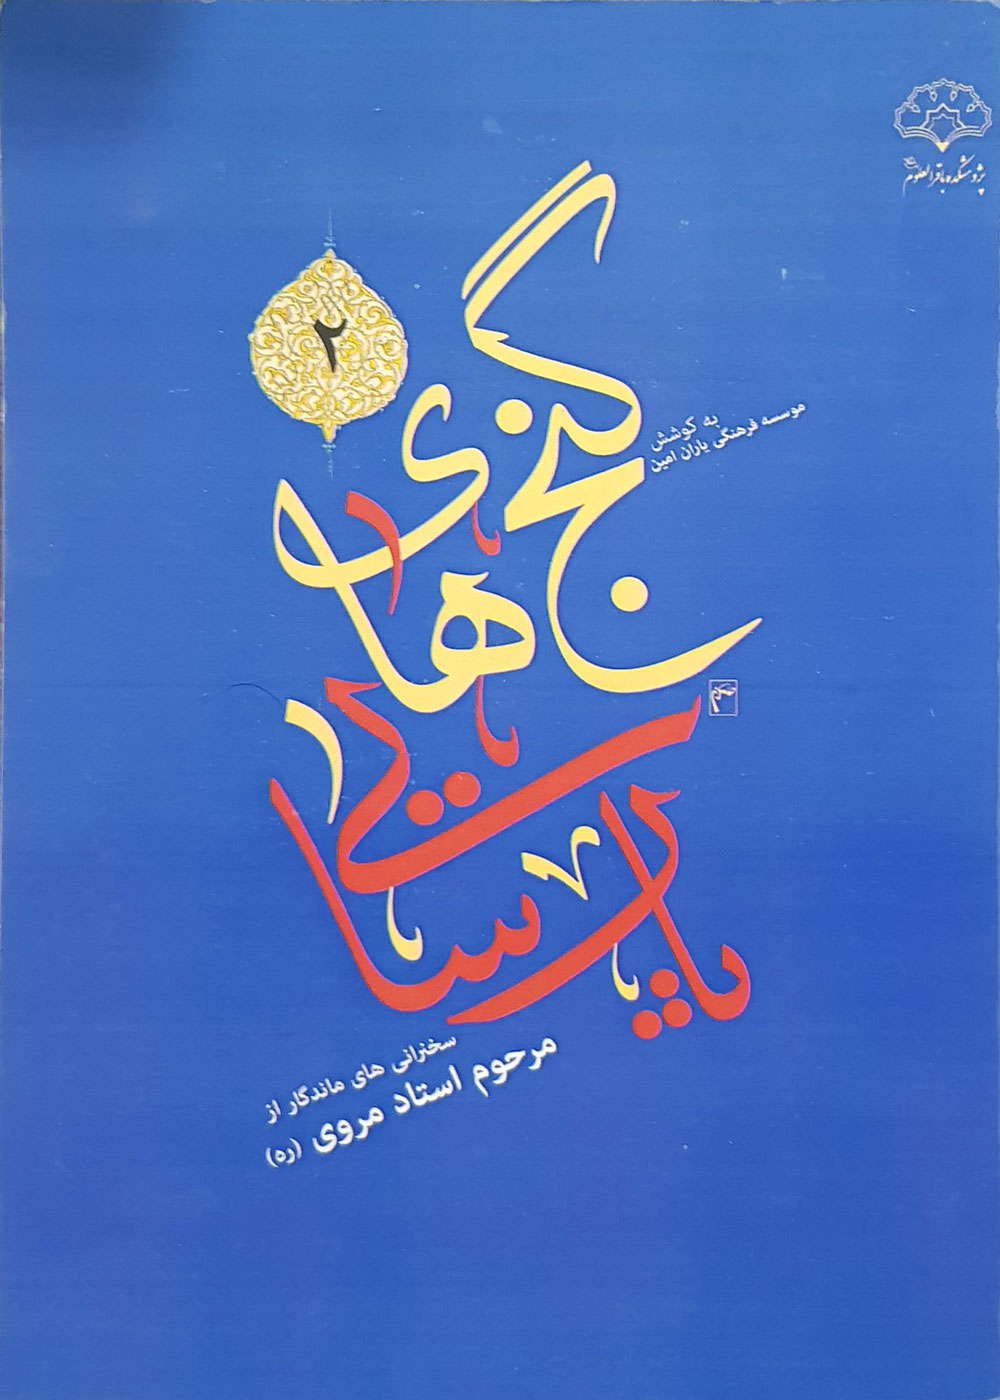 پژوهشکده باقرالعلوم
۲
گنج های
به کوشش
موسسه فرهنگی یاران امین
پارسایی
سخنرانی های ماندگار از
مرحوم استاد مروی (ره)